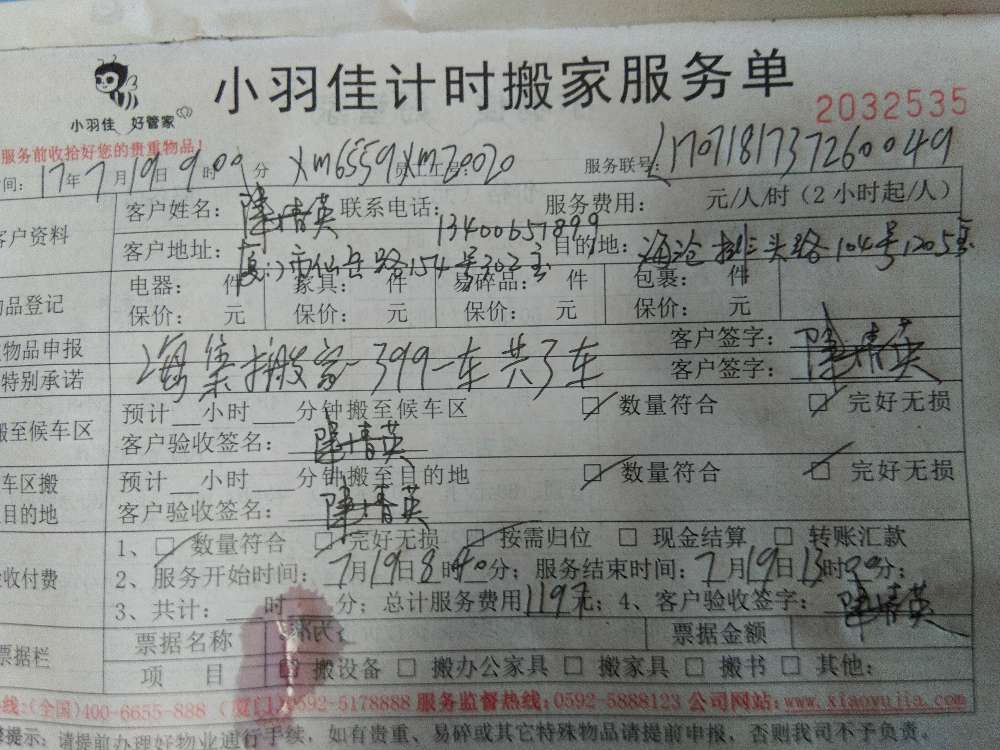 小羽佳计时搬家服务单
小羽佳 好管家
2032535
服务前收拾好您的贵重物品!
间: 17年7月19日9时00分 XM6559 员工工号: XM20020 服务联号: 1707181737260049
客户资料
客户姓名: 陈靖英 联系电话: 13400657899 服务费用: 元/人/时 (2小时起/人)
客户地址: 厦门市仙岳路154号303室 目的地: 海沧排头路104号1205室
品登记
电器: 件 家具: 件 易碎品: 件 包裹: 件
保价: 元 保价: 元 保价: 元 保价: 元
物品申报 客户签字: 陈靖英
特别承诺 搬家一399一车共3车 客户签字:
搬至候车区
预计 小时 分钟搬至候车区 数量符合 完好无损
客户验收签名: 陈靖英
车区搬
目的地
预计 小时 分钟搬至目的地 数量符合 完好无损
客户验收签名: 陈靖英
收付费
1、 数量符合 完好无损 按需归位 现金结算 转账汇款
2、服务开始时间: 7月19日8时40分; 服务结束时间: 7月19日13时30分;
3、共计: 时 分; 总计服务费用1197元; 4、客户验收签字: 陈靖英
票据栏
票据名称 票据金额
项 目 搬设备 搬办公家具 搬家具 搬书 其他:
线:(全国)400-6655-888 (厦门)0592-5178888 服务监督热线:0592-5888123 公司网站:www.xiaoyujia.com
提示: 请提前办理好物业通行手续, 如有贵重、易碎或其它特殊物品请提前申报, 否则我司不予负责。